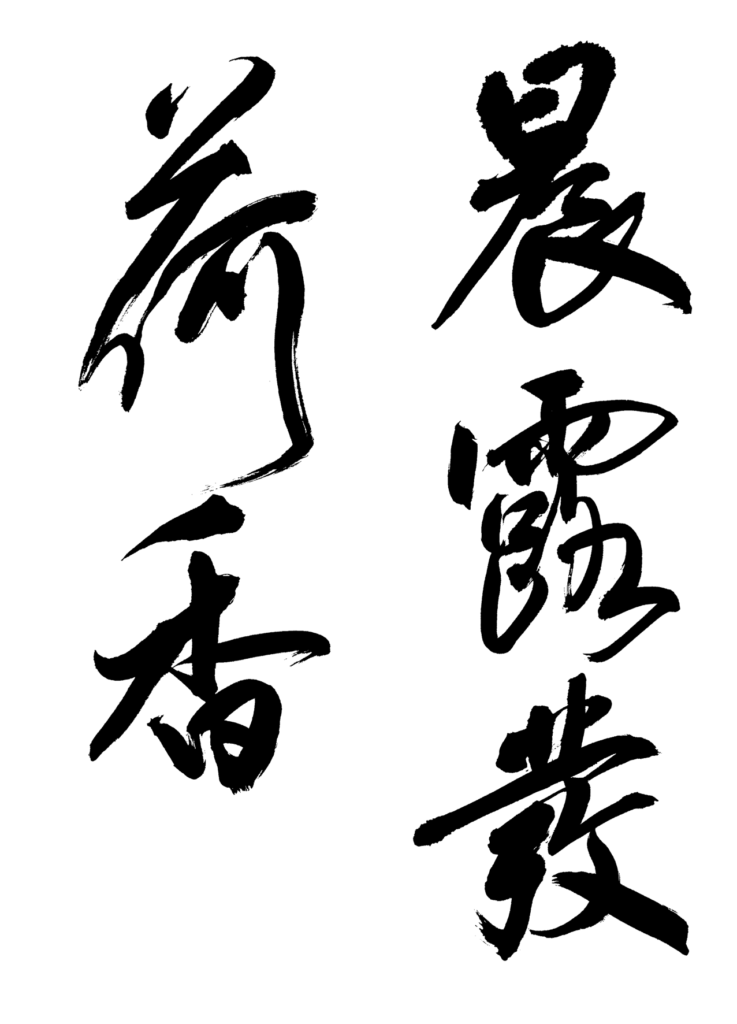 晨露發
荷香